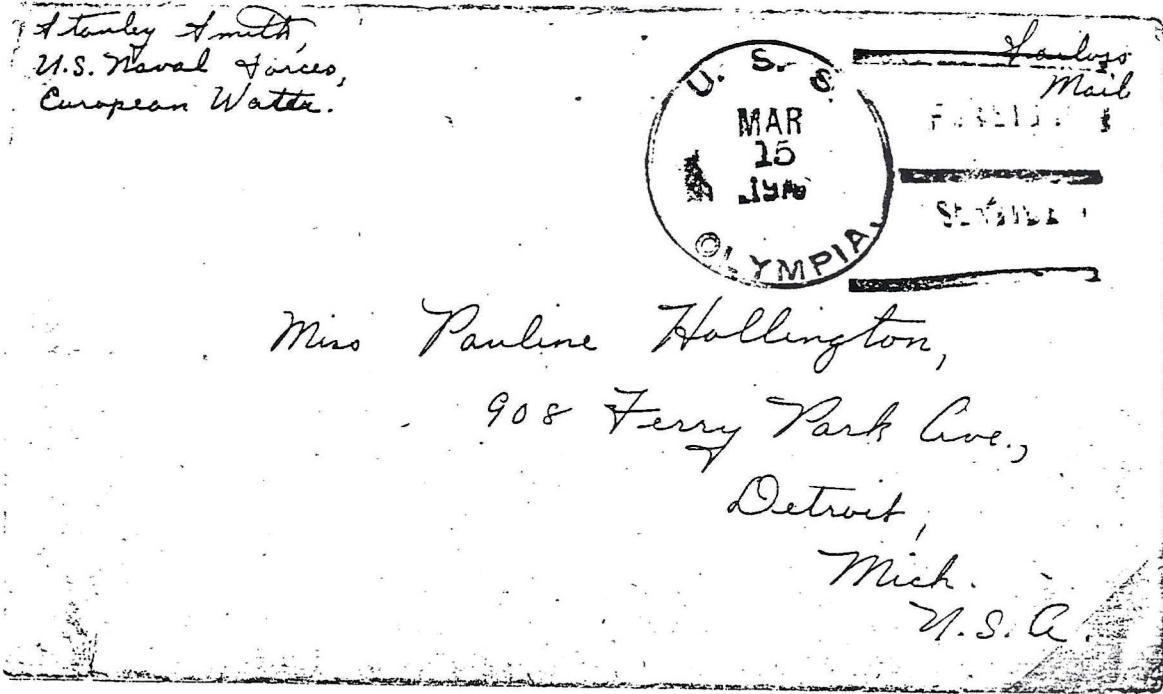 Stanley Smith,
U.S. Naval Forces,
European Watta.
Sailors
Mail
U. S. S.
MAR
15
OLYMPIA.
Miss Pauline Hollington,
908 Ferry Park Ave.,
Detroit,
Mich.
U.S.A.